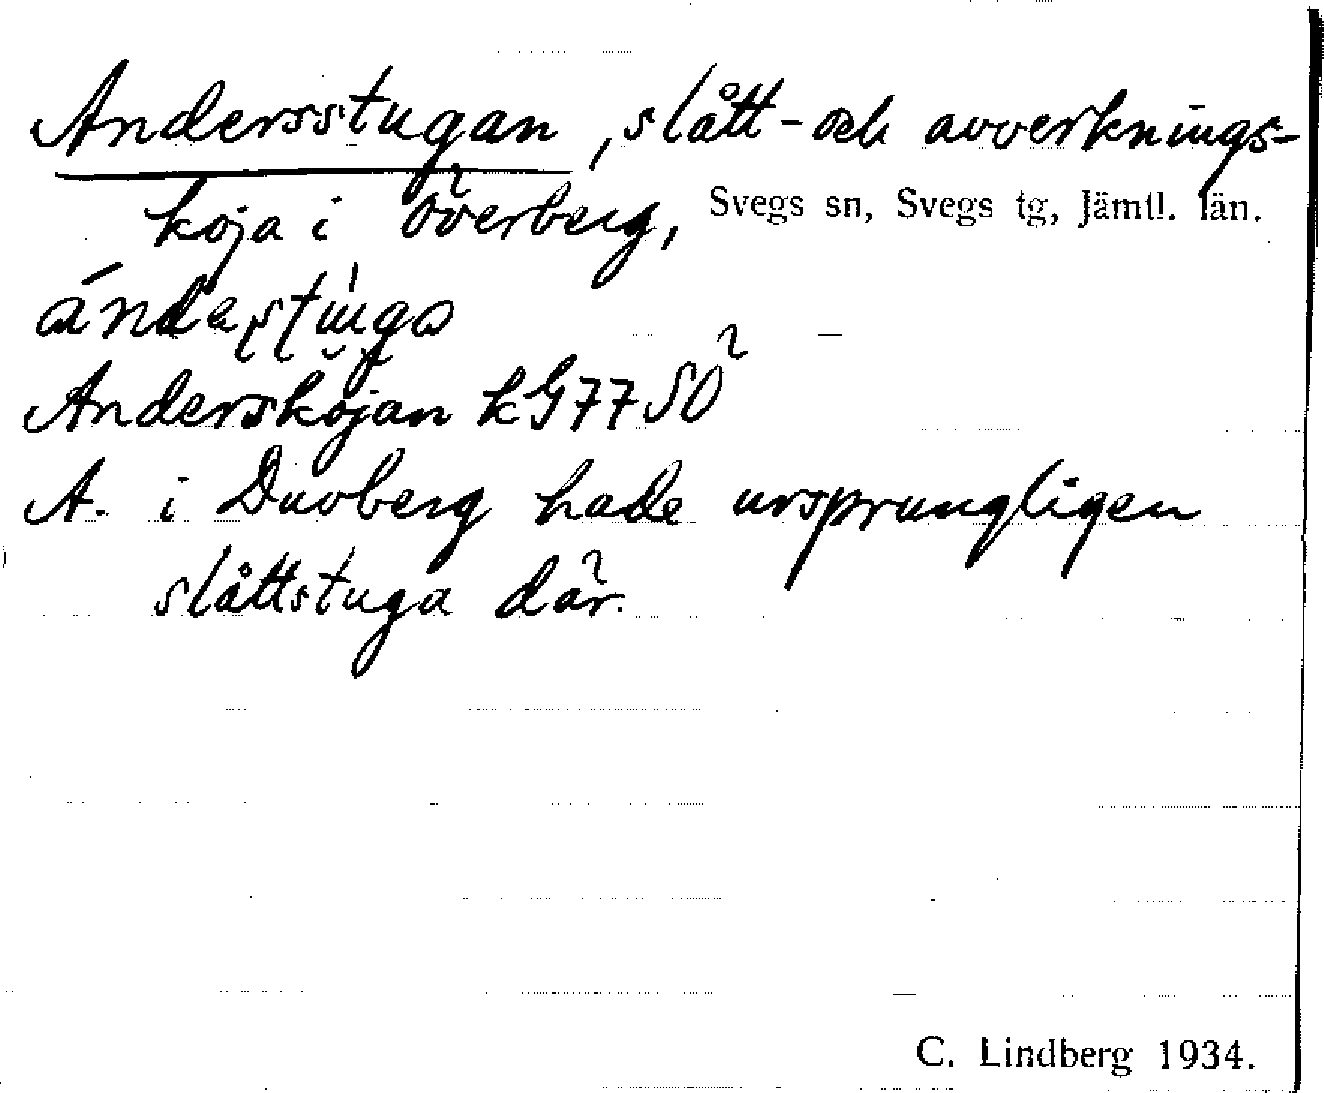 Andersstugan, slått- och avverknings-
koja i Överberg, Svegs sn, Svegs tg, Jämtl. län.
Anderskojan kG77SÖ
A. i Duvberg hade ursprungligen
slåttstuga där.
C. Lindberg 1934.